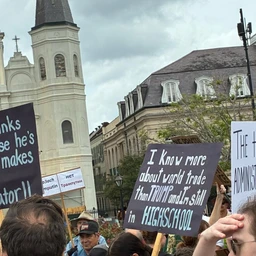 nks
se he's
makes
ator!!
NOT
I KNOW more
about world trade
than TRUMP and I'm still
in HIGHSCHOOL
THE t
ADMINIS